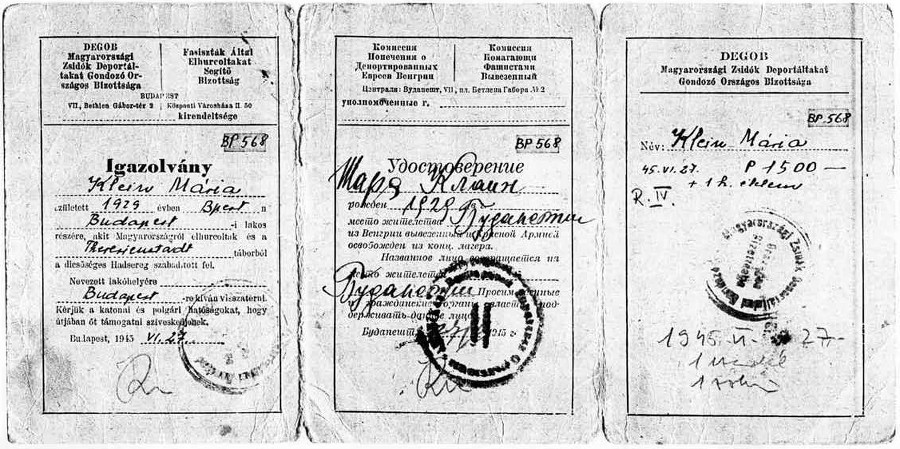 DEGOB
Magyarországi
Zsidók Deportál-
takat Gondozó Or-
szágos Bizottsága
Fasiszták Által
Elhurcoltakat
Segítő
Bizottság
BUDAPEST
VII., Bethlen Gábor-tér 2
Központi Városháza II. 50
kirendeltsége
BP 568
Igazolvány
Klein Mária
született 1929 évben Bpest n
Budapest -i lakos
részére, akit Magyarországról elhurcoltak és a
Theresienstadt táborból
a dicsőséges Hadsereg szabadított fel.
Nevezett lakóhelyére
Budapest -re kíván visszatérni.
Kérjük a katonai és polgári hatóságokat, hogy
útjában őt támogatni szíveskedjenek.
Budapest, 1945 VI. 27.
Комиссия
Попечения о
Депортированных
Евреев Венгрии
Комиссия
Помагающи
Фашистами
Вывезенный
Централа: Будапешт, VII, пл. Бетлена Габора № 2
уполномоченные г.
BP 568
Удостоверение
Мария Клаин
рожден 1929 Будапештии
место жителства
из Венгрии вывезенный Красной Армией
освобожден из конц. лагера.
Названное лицо возвращается на
место жителства
Будапештии Просим военные
и гражданские органы власти под-
держивать данное лицо
Будапешт 1945 г.
II
DEGOB
Magyarországi Zsidók Deportáltakat
Gondozó Országos Bizottsága
BP 568
Név: Klein Mária
45. VI. 27. P 1500 —
+ 1 h.
R. IV.
1945 27-
1
1